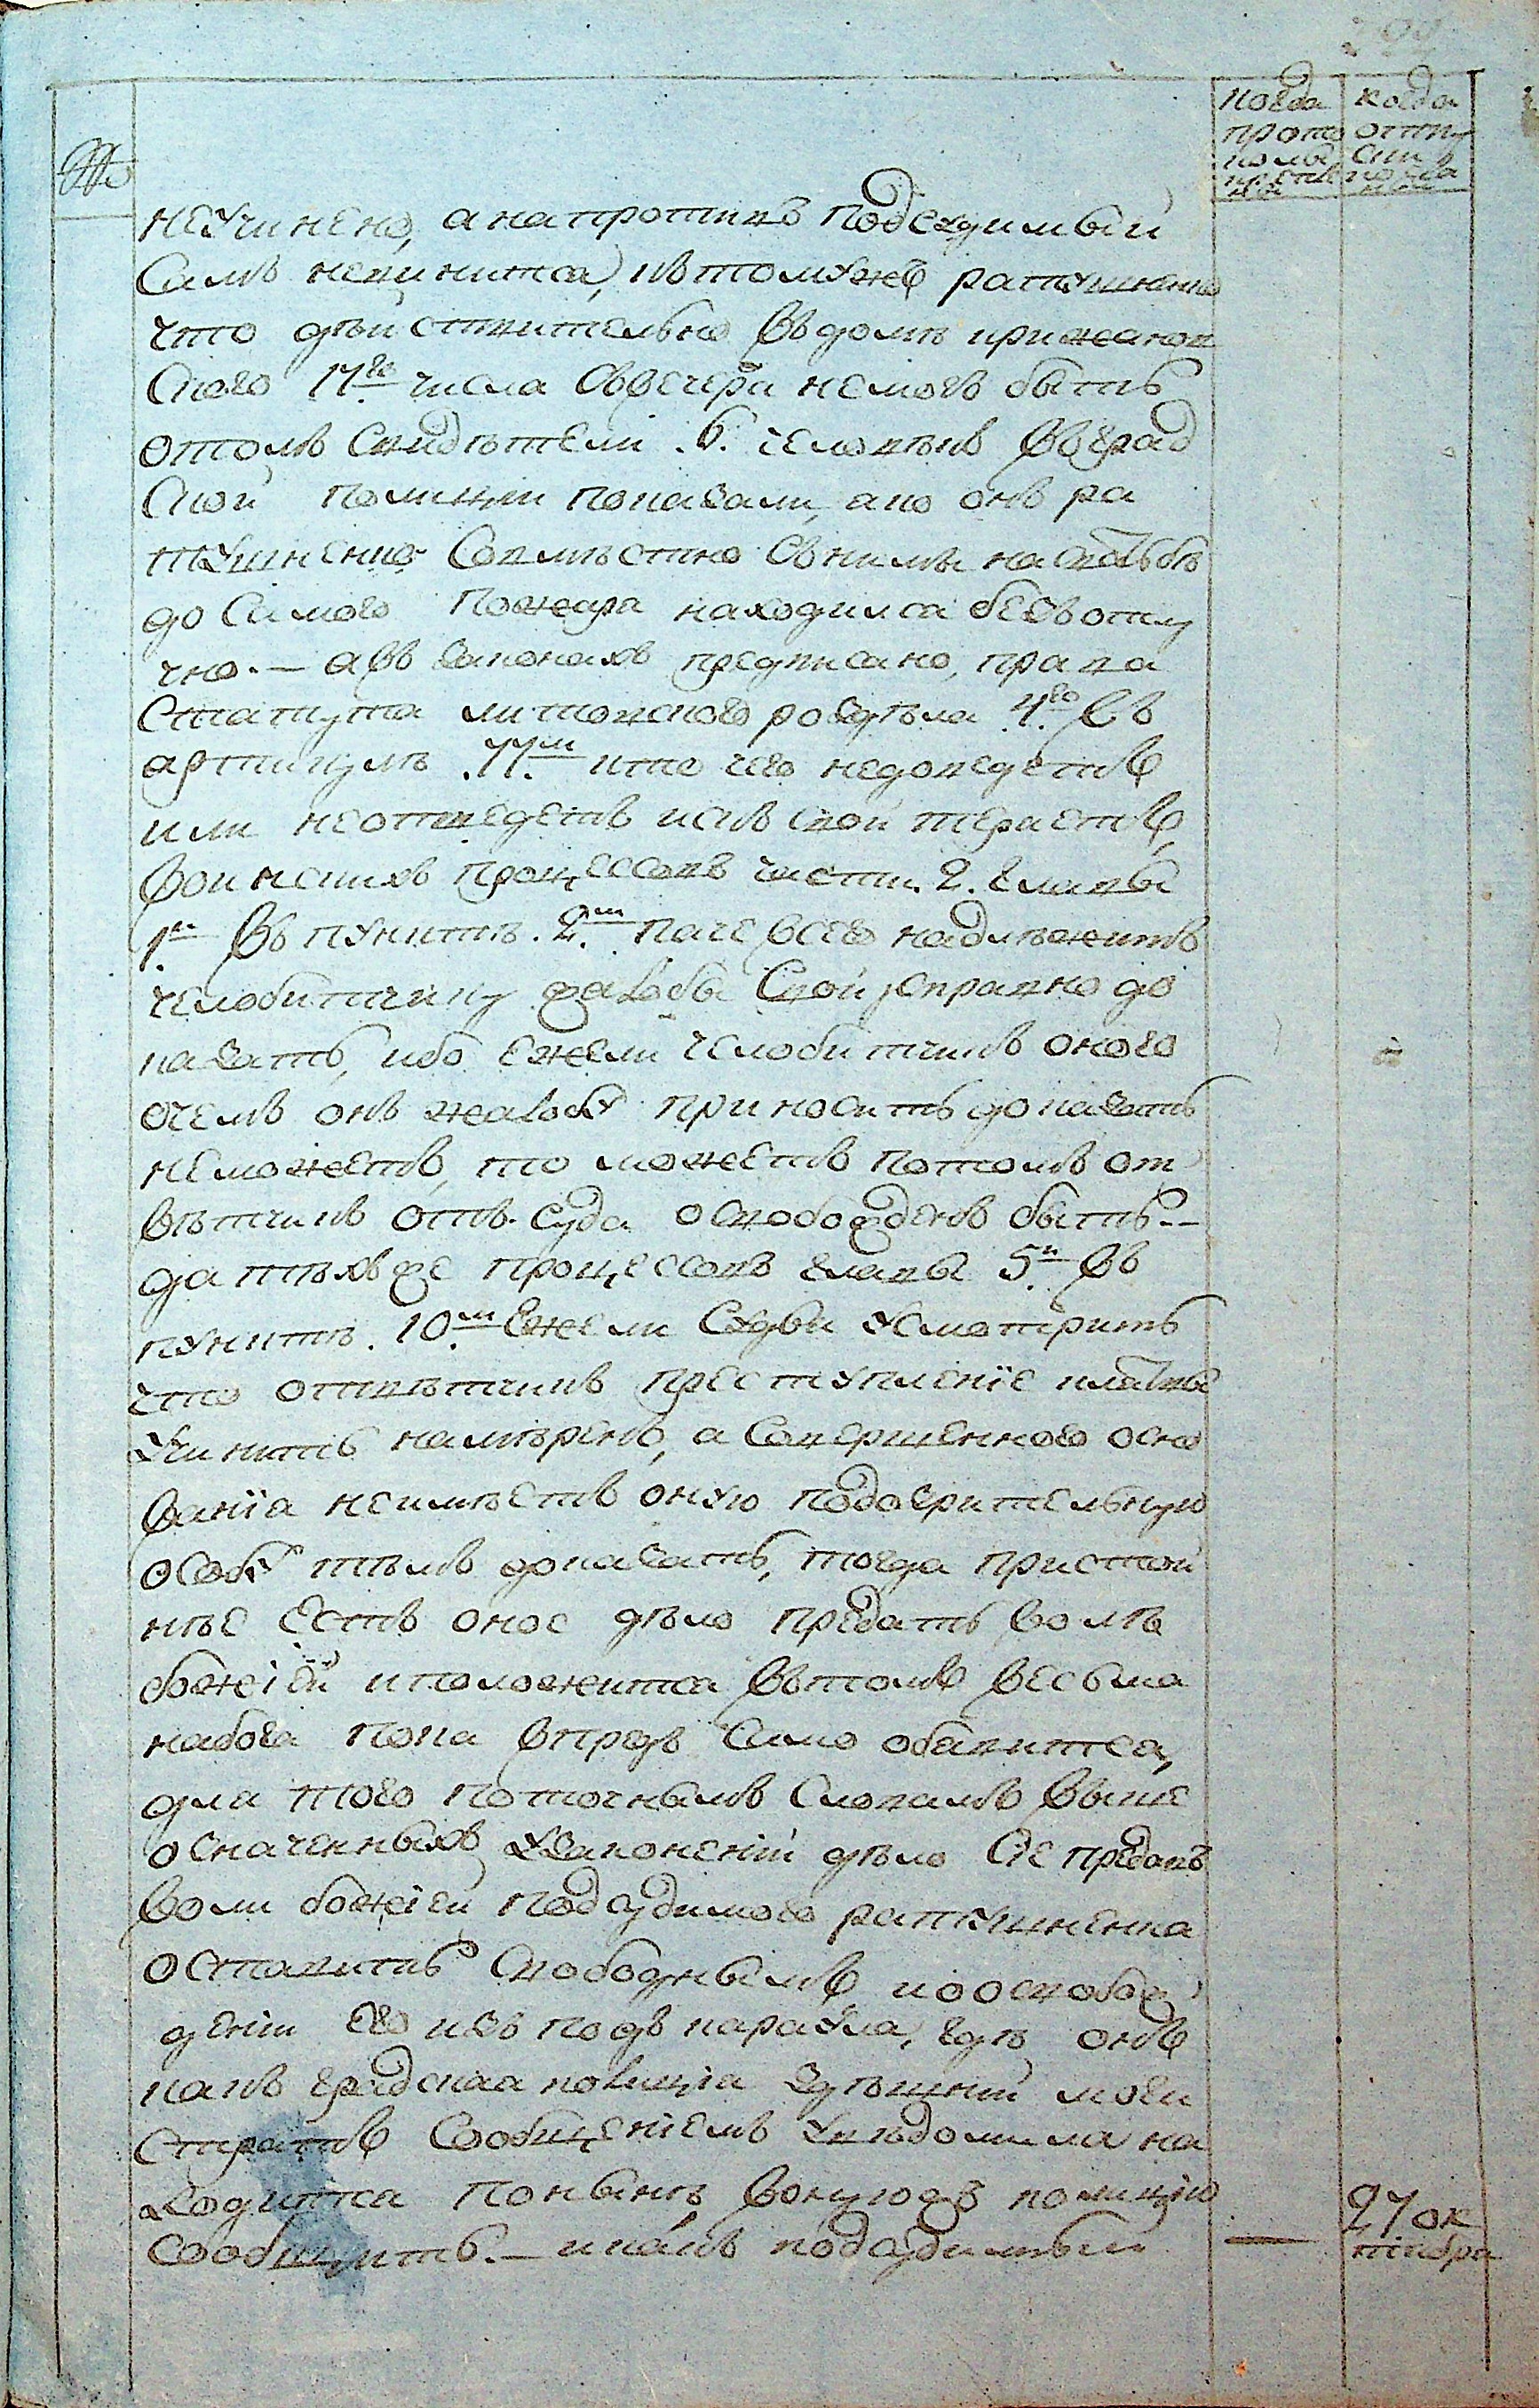 когда
прото
колы
когда
отпу
№
неучинено, анапротивъ подсудимый
самъ невинится, ктомужъ ратушненко
что действительно въдомъ крижанов
ского 17го числа съвечера немогъ быть
отомъ свидѣтели .6. человѣкъ въград
ской полиции показали, ако онъ ра
тушненко совмѣстно съними насвадьбѣ
до самого пожара находился безъотлу
чно. — авъ законахъ предписано, права
статута литовского роздѣла 4го въ
артикулѣ .77м кто чего недоведетъ
или неотведетъ искъ свой теряетъ,
воинскихъ процессовъ части. 2. главы
1й въ пунктѣ. 2м паче всего надлѣжитъ
челобитчику жалобы свой справно до
казать, ибо ежели челобитчикъ оного
очемъ онъ жалобу приноситъ доказать
неможетъ, то можетъ потомъ от
вѣтчикъ отъ суда освобожденъ быть. —
датѣхъже процессовъ главы 5й въ
пунктѣ. 10м ежели судьи усмотритъ
что отвѣтчикъ преступленїе клятвы
учинить намѣренъ, а совершенного осно
ванїя неимѣетъ оную подозрительную
особу тѣмъ доказать, тогда пристой
нѣе есть оное дѣло предать волѣ
божїей иположится въ томъ весьма
набога пока впредь само обавится,
для того поточнымъ словамъ выше
означенныхъ узаконений дѣло сїе предавъ
воли божїей подсудимого ратушненка
оставить свободнымъ ио освобож
денїи его изъ подъ караула, гдѣ онъ
какъ градская полицїя здѣшний маги
стратъ сообщенїемъ увѣдомила на
ходится понынѣ, вонуюжъ полицїю
сообщить. — икакъ подсудимый
27 ок
тября